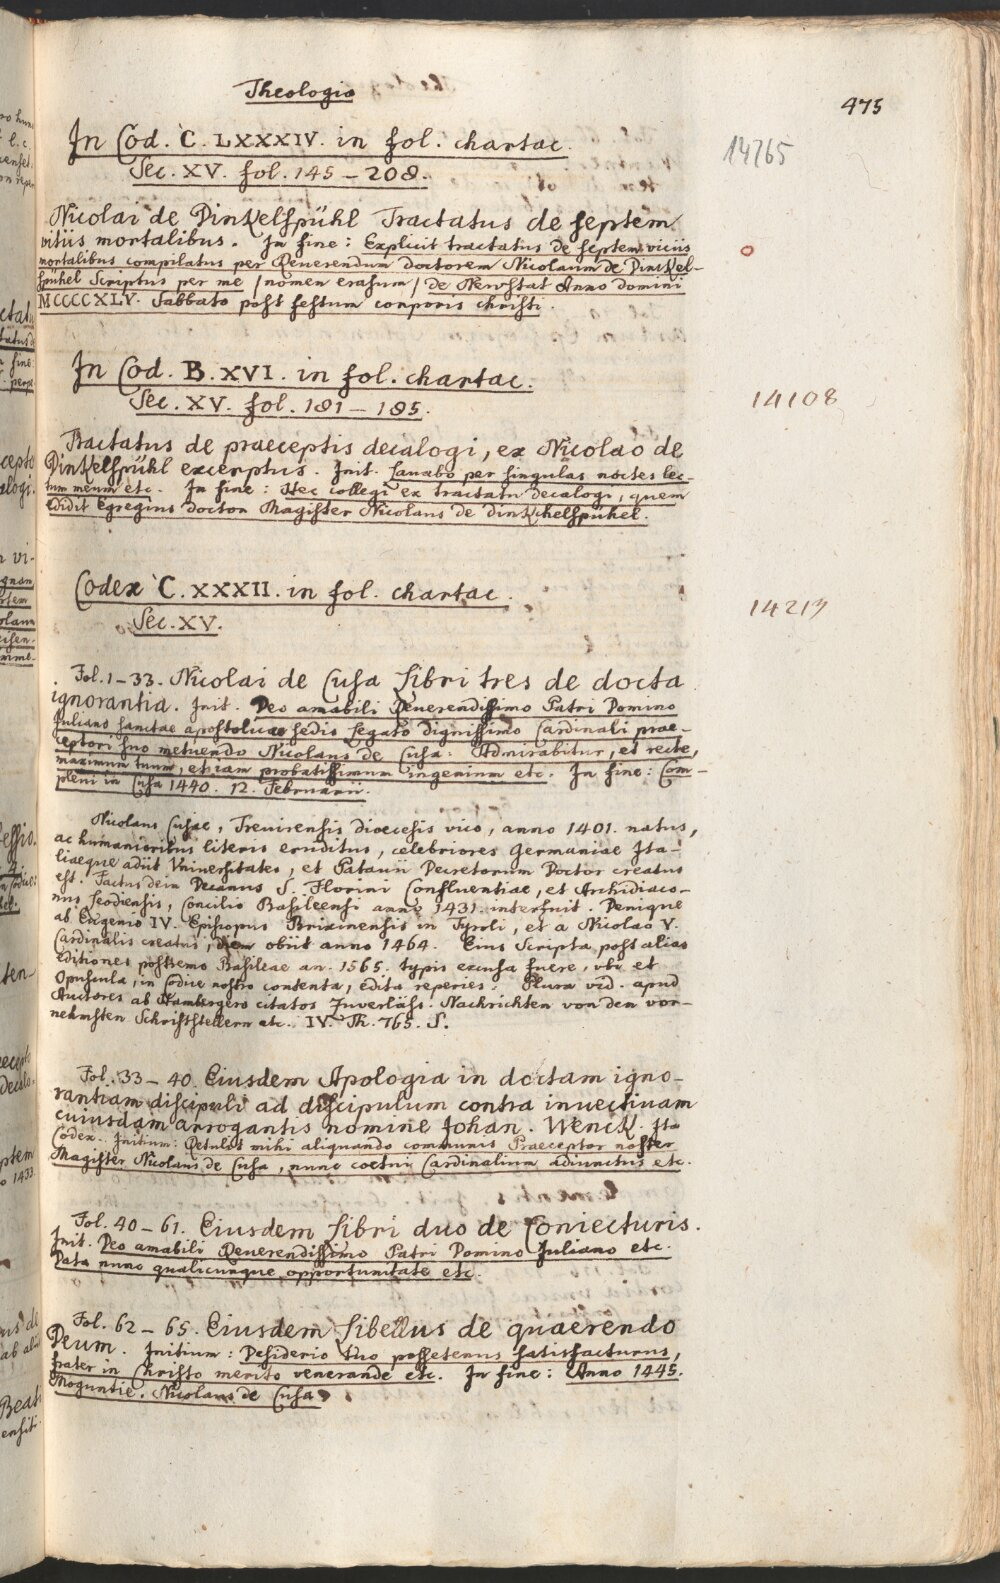 Theologia
475
In Cod. C. LXXXIV. in fol. chartac.
14765
Sec. XV. fol. 145 – 208.
Nicolai de Dinkelspühl Tractatus de septem
vitiis mortalibus. In fine: Explicit tractatus de septem viciis
mortalibus compilatus per Reuerendum doctorem Nicolaum de Dinckel-
spühel Scriptus per me /nomen erasum/ de Newstat Anno domini
MCCCCXLV. Sabbato post festum corporis christi.
In Cod. B. XVI. in fol. chartac.
14108
Sec. XV. fol. 181 – 185.
Tractatus de praeceptis decalogi, ex Nicolao de
Dinkelspühl excerptus. Init. Lauabo per singulas noctes lec-
tum meum etc. In fine: Hec collegi ex tractatu decalogi, quem
edidit Egregius doctor Magister Nicolaus de dinkchelspühel.
Codex C. XXXII. in fol. chartac.
14213
Sec. XV.
Fol. 1–33. Nicolai de Cusa Libri tres de docta
ignorantia. Init. Deo amabili Reuerendissimo Patri Domino
Juliano sanctae apostolicae sedis Legato dignissimo Cardinali prae-
ceptori suo metuendo Nicolaus de Cusa: Admirabitur, et recte,
maximum tuum, etiam probatissimum ingenium etc. In fine: Com-
pleui in Cusa 1440. 12. Februarii.
Nicolaus Cusae, Treuirensis dioecesis vico, anno 1401. natus,
ac humanioribus literis eruditus, celebriores Germaniae Ita-
liaeque adiit Vniuersitates, et Patauii Decretorum Doctor creatus
est. Factus dein Decanus S. Florini Confluentiae, et Archidiaco-
nus Leodiensis, Concilio Basileensi anno 1431. interfuit. Denique
ab Eugenio IV. Episcopus Brixinensis in Tyroli, et a Nicolao V.
Cardinalis creatus, diem obiit anno 1464. Eius Scripta post alias
editiones postremo Basileae an. 1565. typis excusa fuere, vbi et
Opuscula, in Codice nostro contenta, edita reperies. Plura vid. apud
Auctores ab Hambergero citatos Zuverläss. Nachrichten von den vor-
nehmsten Schriftstellern etc. IV. Th. 765. S.
Fol. 33–40. Eiusdem Apologia in doctam igno-
rantiam discipuli ad discipulum contra inuectiuam
cuiusdam arrogantis nomine Johan. Wenck. Ita
Codex. Initium: Retulit mihi aliquando communis Praeceptor noster
Magister Nicolaus de Cusa, nunc coetui Cardinalium adiunctus etc.
Fol. 40–61. Eiusdem Libri duo de Coniecturis.
Init. Deo amabili Reuerendissimo Patri Domino Juliano etc.
Data nunc qualicunque opportunitate etc.
Fol. 62–65. Eiusdem Libellus de quaerendo
Deum. Initium: Desiderio tuo possetenus satisfacturus,
frater in Christo merito venerande etc. In fine: Anno 1445.
Moguntie. Nicolaus de Cusa.